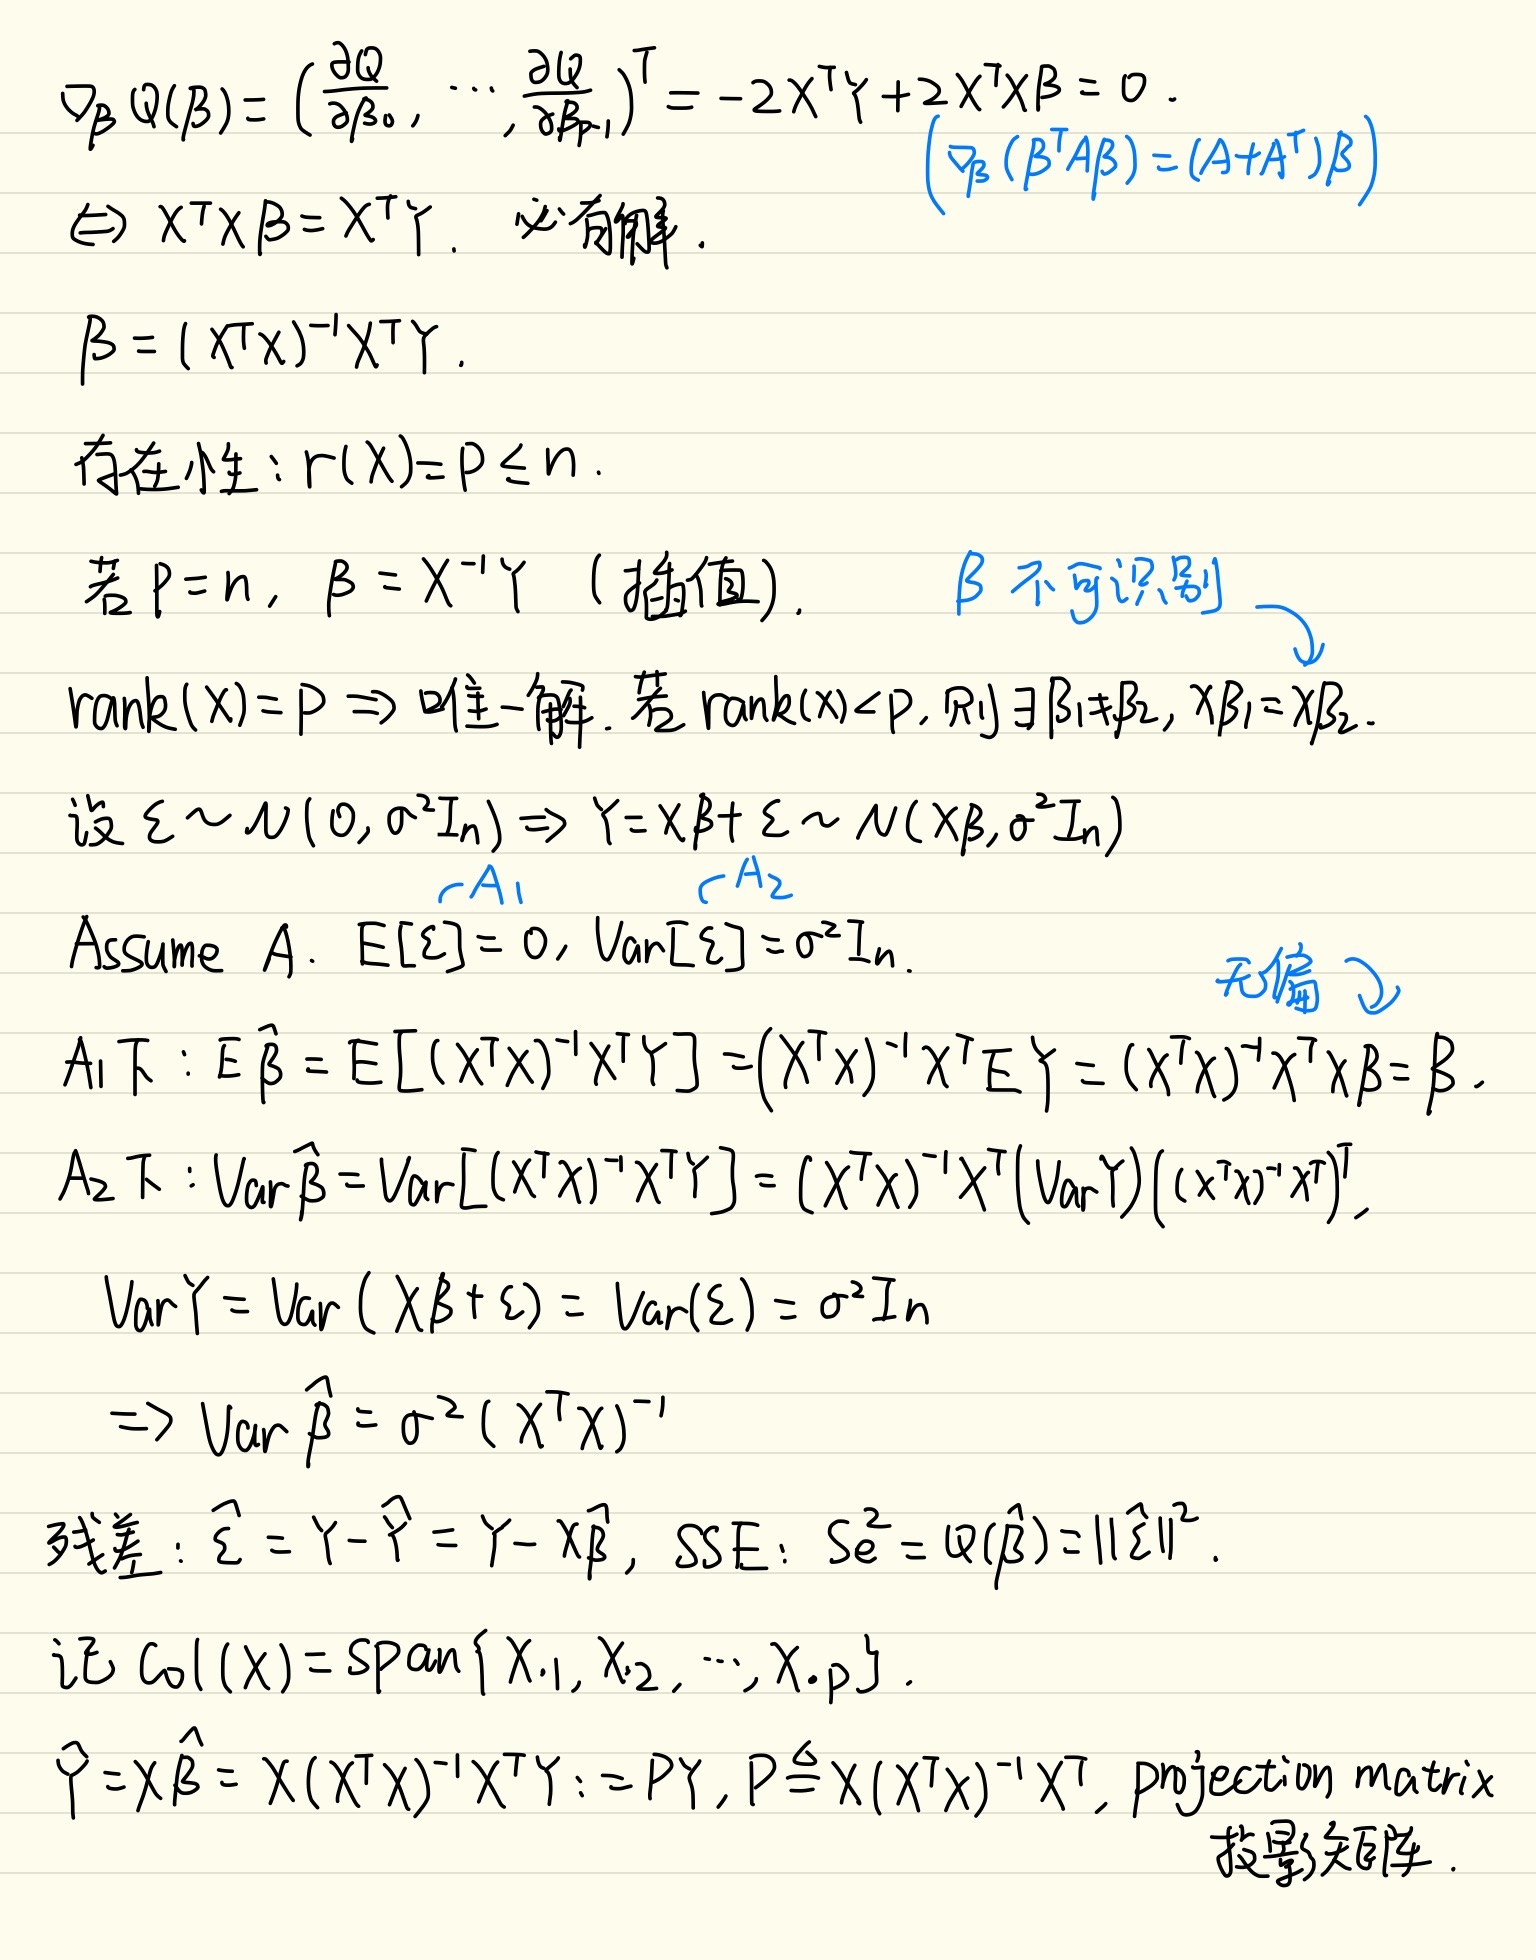 ∇_β Q(β) = (∂Q/∂β₀, ⋯, ∂Q/∂β_{p-1})ᵀ = -2XᵀY + 2XᵀXβ = 0.
(∇_β(βᵀAβ) = (A+Aᵀ)β)
⇔ XᵀXβ = XᵀY. 必有解.
β = (XᵀX)⁻¹XᵀY.
存在性: r(X) = p ≤ n.
若 p = n, β = X⁻¹Y (插值).
β 不可识别
rank(X) = p ⇒ 唯一解. 若 rank(X) < p, 则 ∃ β₁ ≠ β₂, Xβ₁ = Xβ₂.
设 ε ~ N(0, σ²Iₙ) ⇒ Y = Xβ + ε ~ N(Xβ, σ²Iₙ)
A₁ A₂
Assume A. E[ε] = 0, Var[ε] = σ²Iₙ.
无偏
A₁下: E β̂ = E[(XᵀX)⁻¹XᵀY] = (XᵀX)⁻¹XᵀEY = (XᵀX)⁻¹XᵀXβ = β.
A₂下: Var β̂ = Var[(XᵀX)⁻¹XᵀY] = (XᵀX)⁻¹Xᵀ(VarY)((XᵀX)⁻¹Xᵀ)ᵀ,
VarY = Var(Xβ + ε) = Var(ε) = σ²Iₙ
⇒ Var β̂ = σ²(XᵀX)⁻¹
残差: ε̂ = Y - Ŷ = Y - Xβ̂, SSE: Se² = Q(β̂) = ||ε̂||².
记 Col(X) = span{X.₁, X.₂, ⋯, X.ₚ}.
Ŷ = Xβ̂ = X(XᵀX)⁻¹XᵀY := PY, P ≜ X(XᵀX)⁻¹Xᵀ, projection matrix
投影矩阵.